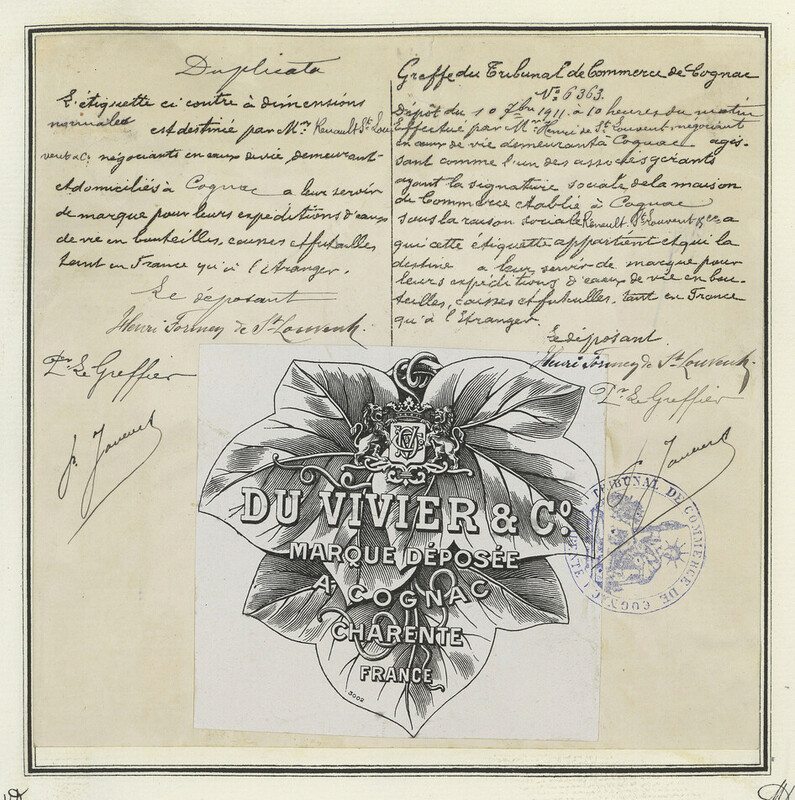 Duplicata
L'étiquette ci contre à dimensions
normales est destinée par Mrs Renault St Lou
vent & Co négociants en eaux de vie, demeurant
et domiciliés à Cognac a leur servir
de marque pour leurs expéditions d'eaux
de vie en bouteilles, caisses et futailles,
tant en France qu'à l'étranger.
Le déposant
Henri Tormey de St Louvent
Pr Le Greffier
Greffe du Tribunal de Commerce de Cognac
No 6363.
Dépôt du 10 7bre 1911, à 10 heures du matin
Effectué par Mr Henri de St Louvent, négociant
en eaux de vie demeurant à Cognac agis-
sant comme l'un des associés gérants
ayant la signature sociale de la maison
de Commerce établie à Cognac
sous la raison sociale Renault St Louvent & Co
qui cette étiquette appartient et qui la
destine a leur servir de marque pour
leurs expéditions d'eaux de vie en bou-
teilles, caisses et futailles, tant en France
qu'à l'Etranger.
Le déposant
Henri Tormey de St Louvent
Pr Le Greffier
DU VIVIER & Co
MARQUE DÉPOSÉE
A COGNAC
CHARENTE
FRANCE
3002
TRIBUNAL DE COMMERCE DE COGNAC